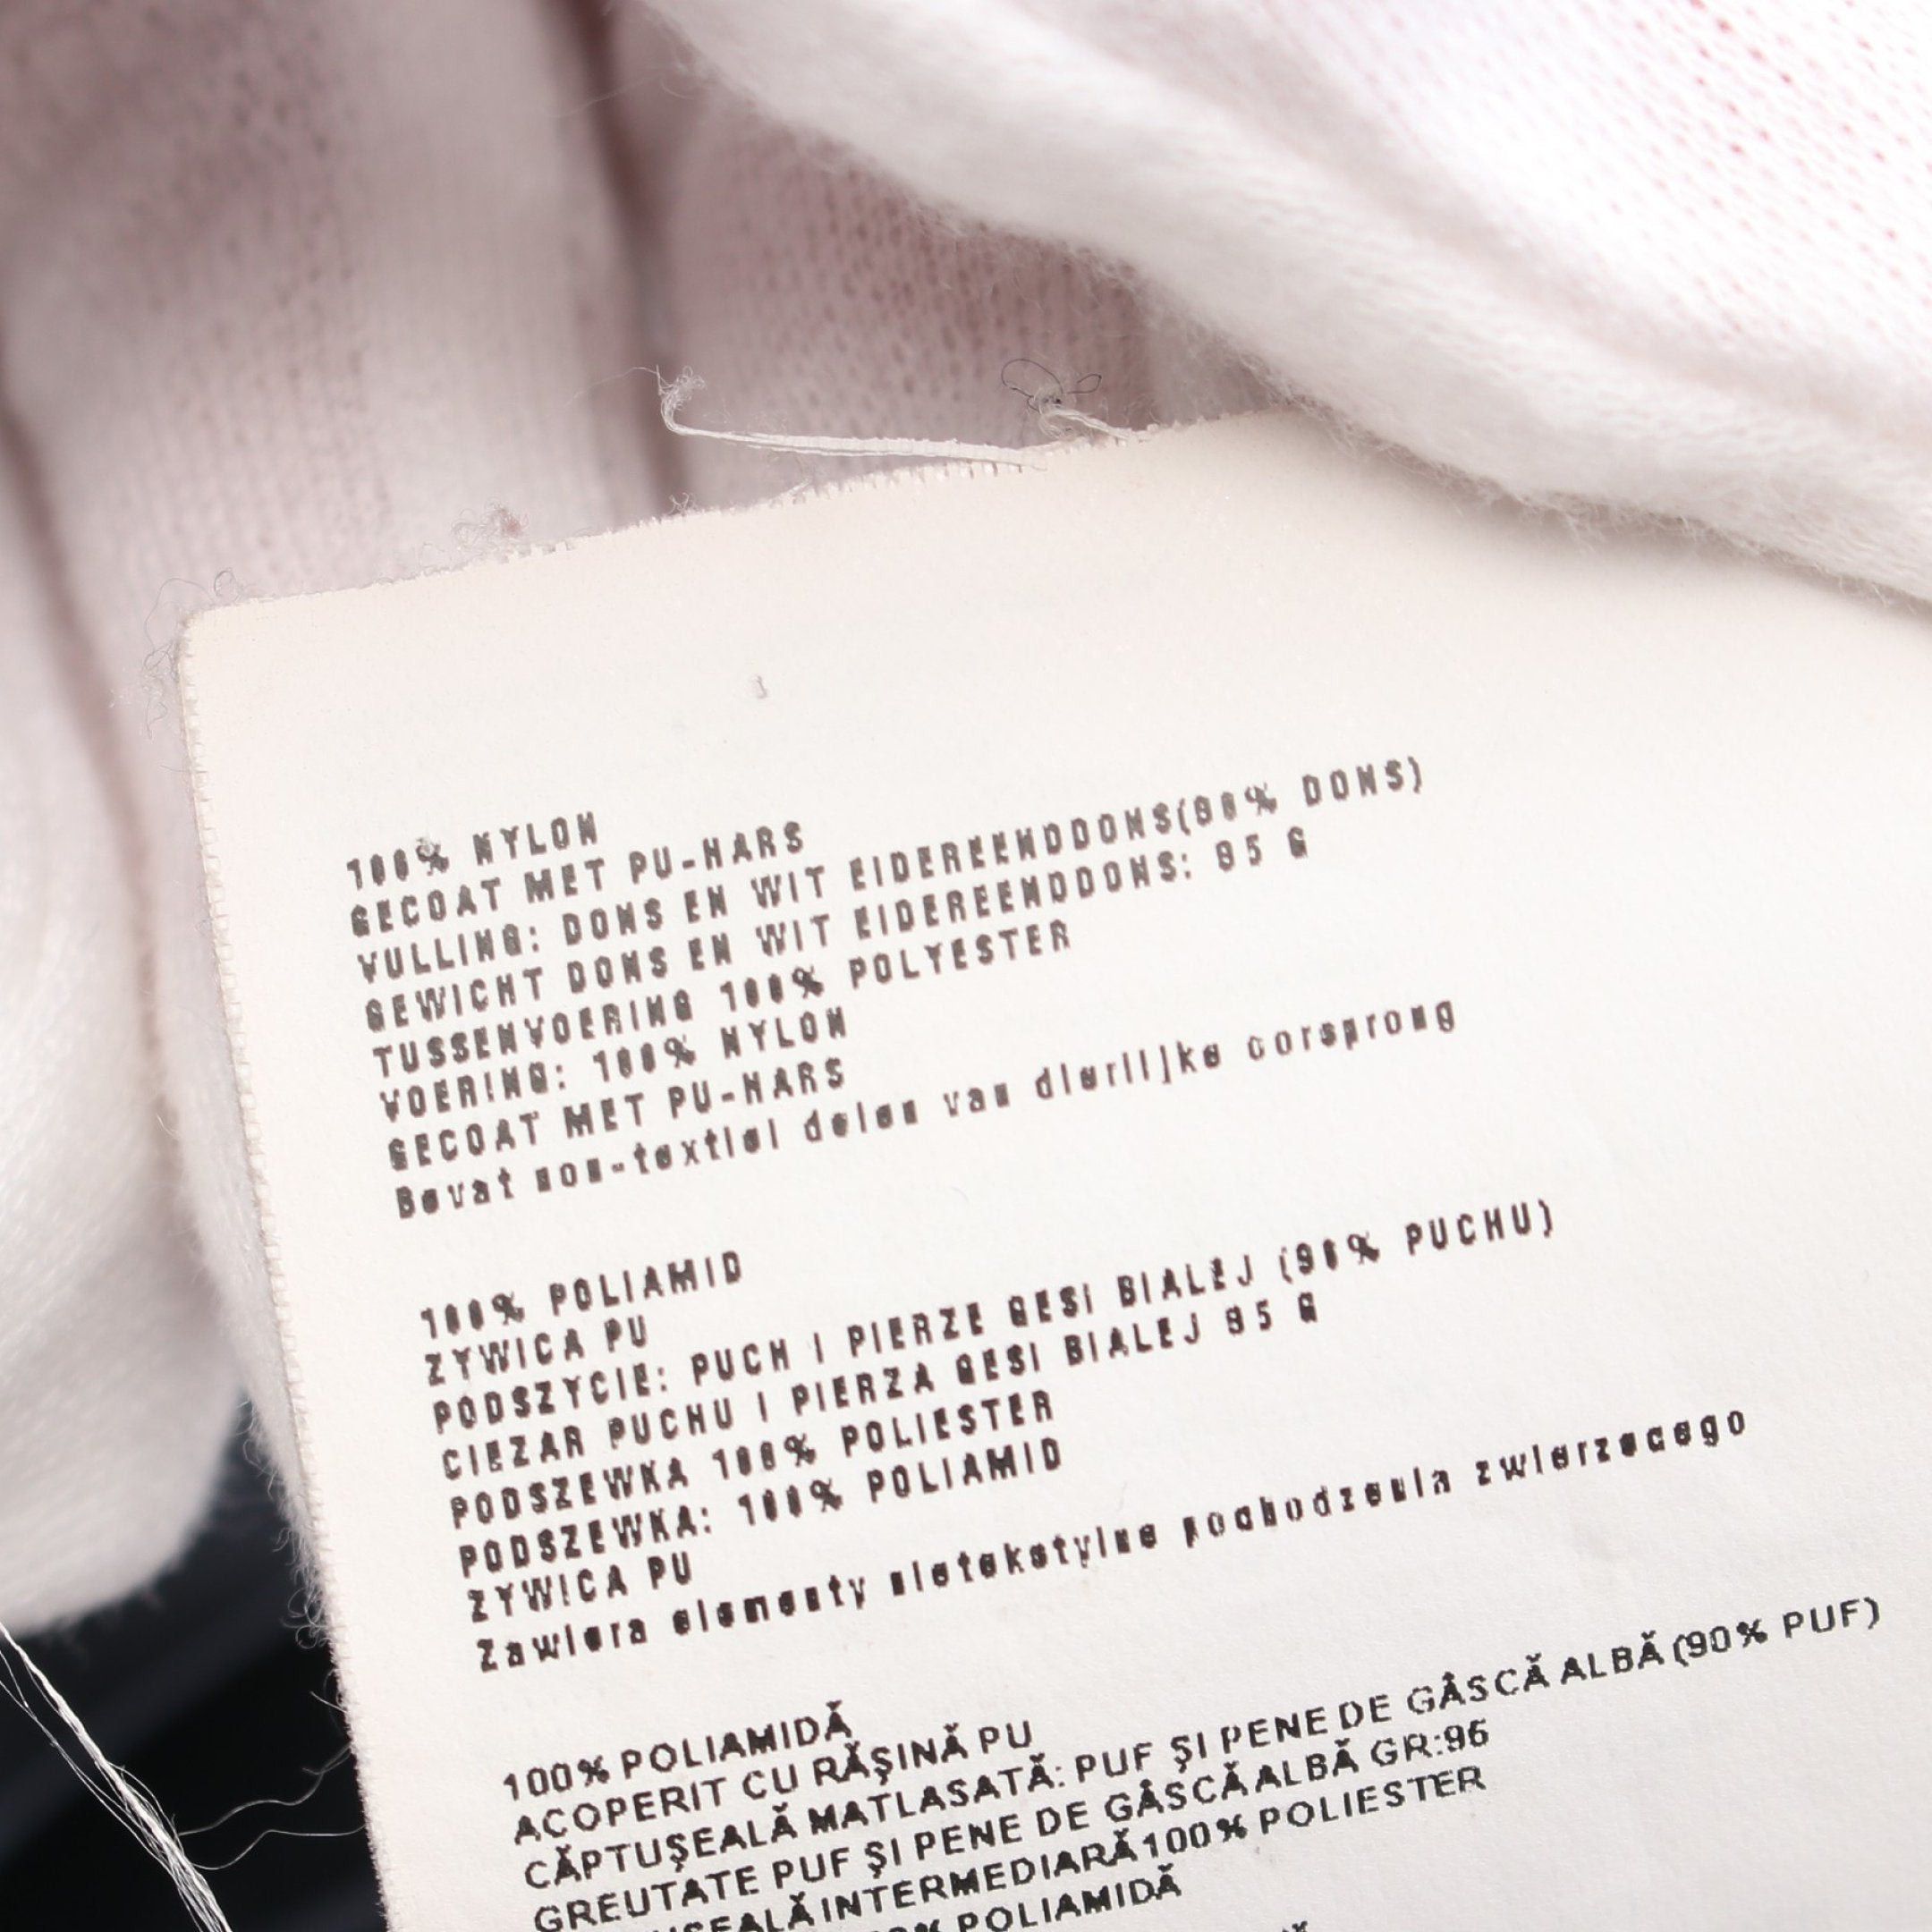 100% NYLON
GECOAT MET PU-HARS
VULLING: DONS EN WIT EIDEREENDDONS(90% DONS)
GEWICHT DONS EN WIT EIDEREENDDONS: 95 G
TUSSENVOERING 100% POLYESTER
VOERING: 100% NYLON
GECOAT MET PU-HARS
Bevat non-textiel delen van dierlijke oorsprong
100% POLIAMID
ZYWICA PU
PODSZYCIE: PUCH I PIERZE GESI BIALEJ (90% PUCHU)
CIEZAR PUCHU I PIERZA GESI BIALEJ 95 G
PODSZEWKA 100% POLIESTER
PODSZEWKA: 100% POLIAMID
ZYWICA PU
Zawiera elementy nietekstylne pochodzenia zwierzecego
100% POLIAMIDĂ
ACOPERIT CU RĂŞINĂ PU
CĂPTUŞEALĂ MATLASATĂ: PUF ŞI PENE DE GÂSCĂ ALBĂ (90% PUF)
GREUTATE PUF ŞI PENE DE GÂSCĂ ALBĂ GR:95
INTERMEDIARĂ 100% POLIESTER
POLIAMIDĂ